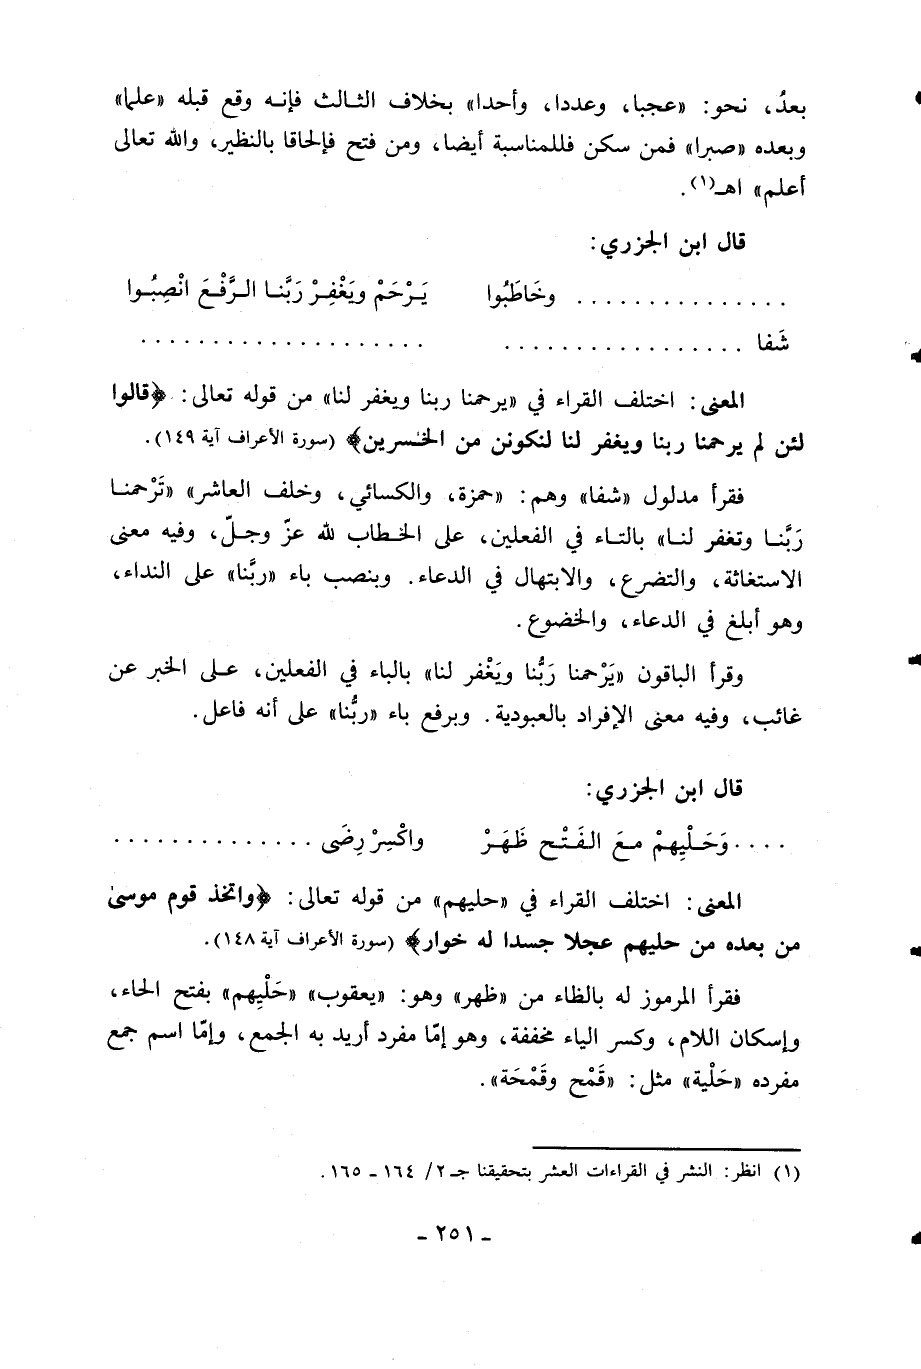 بعدُ، نحو: «عجبا، وعددا، وأحدا» بخلاف الثالث فإنه وقع قبله «علما»
وبعده «صبرا» فمن سكن فللمناسبة أيضا، ومن فتح فإلحاقا بالنظير، والله تعالى
أعلم» اهـ(١).
قال ابن الجزري:
. . . . . . . . . . . . . . . وخَاطَبُوا يَرْحَمْ ويَغْفِرْ رَبَّنا الرَّفْعَ انْصِبُوا
شَفا . . . . . . . . . . . . . . . . . . . . . . . . . . . . . . . . . . .
المعنى: اختلف القراء في «يرحمنا ربنا ويغفر لنا» من قوله تعالى: ﴿قالوا
لئن لم يرحمنا ربنا ويغفر لنا لنكونن من الخٰسرين﴾ (سورة الأعراف آية ١٤٩).
فقرأ مدلول «شفا» وهم: «حمزة، والكسائي، وخلف العاشر» «تَرْحمنا
رَبَّنا وتغفر لنا» بالتاء في الفعلين، على الخطاب لله عزّ وجلّ، وفيه معنى
الاستغاثة، والتضرع، والابتهال في الدعاء. وبنصب باء «ربَّنا» على النداء،
وهو أبلغ في الدعاء، والخضوع.
وقرأ الباقون «يَرْحمنا رَبُّنا ويَغْفر لنا» بالياء في الفعلين، على الخبر عن
غائب، وفيه معنى الإفراد بالعبودية. وبرفع باء «ربُّنا» على أنه فاعل.
قال ابن الجزري:
. . . . وَحَلْيِهِمْ معَ الفَتْحِ ظَهَرْ واكْسِرْ رِضَى . . . . . . . . . . . . . .
المعنى: اختلف القراء في «حليهم» من قوله تعالى: ﴿واتخذ قوم موسىٰ
من بعده من حليهم عجلا جسدا له خوار﴾ (سورة الأعراف آية ١٤٨).
فقرأ المرموز له بالظاء من «ظهر» وهو: «يعقوب» «حَلْيِهم» بفتح الحاء،
وإسكان اللام، وكسر الياء مخففة، وهو إمّا مفرد أريد به الجمع، وإمّا اسم جمع
مفرده «حَلْية» مثل: «قَمْح وقَمْحَة».
(١) انظر: النشر في القراءات العشر بتحقيقنا جـ ٢/ ١٦٤ - ١٦٥.
- ٢٥١ -